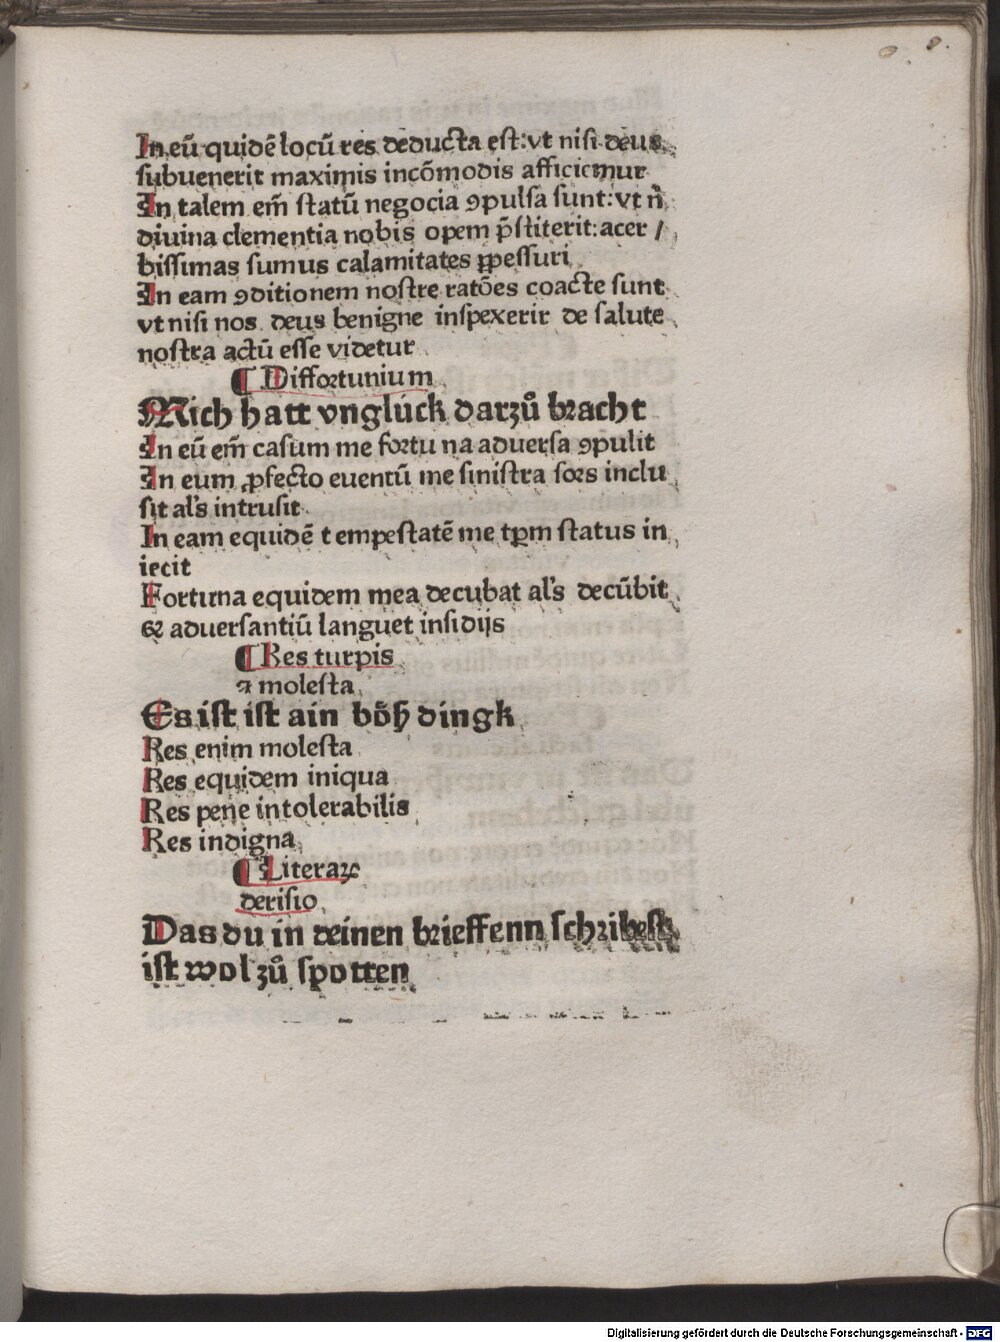 In eū quidē locū res deducta est: vt nisi deus
subuenerit maximis incōmodis afficiemur
In talem em̄ statū negocia ꝯpulsa sunt: vt n̄
diuina clementia nobis opem p̄stiterit: acer /
bissimas sumus calamitates ꝑpessuri
In eam ꝯditionem nostre ratōes coacte sunt
vt nisi nos deus benigne inspexerit de salute
nostra actū esse videtur
¶ Diffortunium
Mich hatt vnglück darzů bracht
In eū em̄ casum me fortu na aduersa ꝯpulit
In eum ꝓfecto euentū me sinistra sors inclu
sit al's intrusit
In eam equidē t empestatē me tꝑm status in
iecit
Fortuna equidem mea decubat al's decūbit
⁊ aduersantiū languet insidijs
¶ Res turpis
⁊ molesta
Es ist ist ain bȍß dingk
Res enim molesta
Res equidem iniqua
Res pene intolerabilis
Res indigna
¶ Literaꝝ
derisio
Das du in deinen brieffenn schribest
ist wol zů spotten
Digitalisierung gefördert durch die Deutsche Forschungsgemeinschaft - DFG